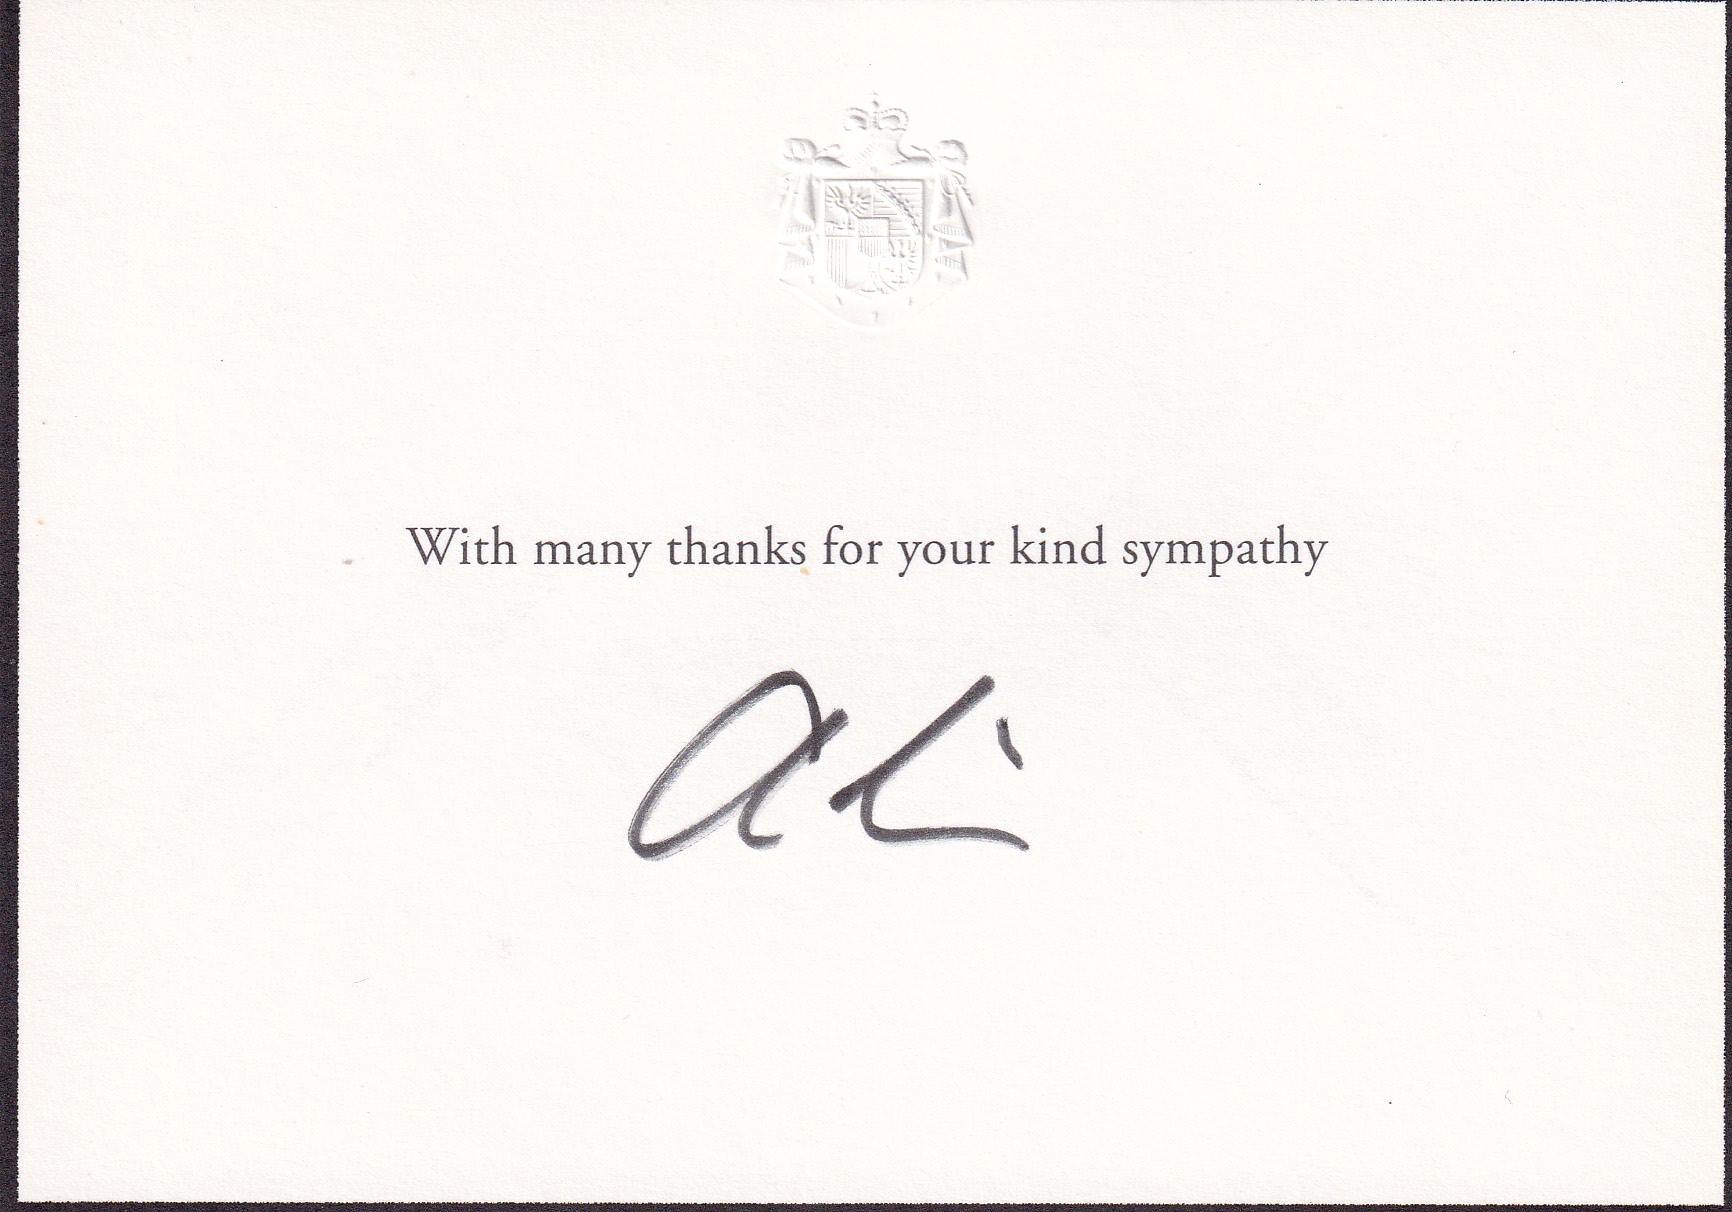 With many thanks for your kind sympathy